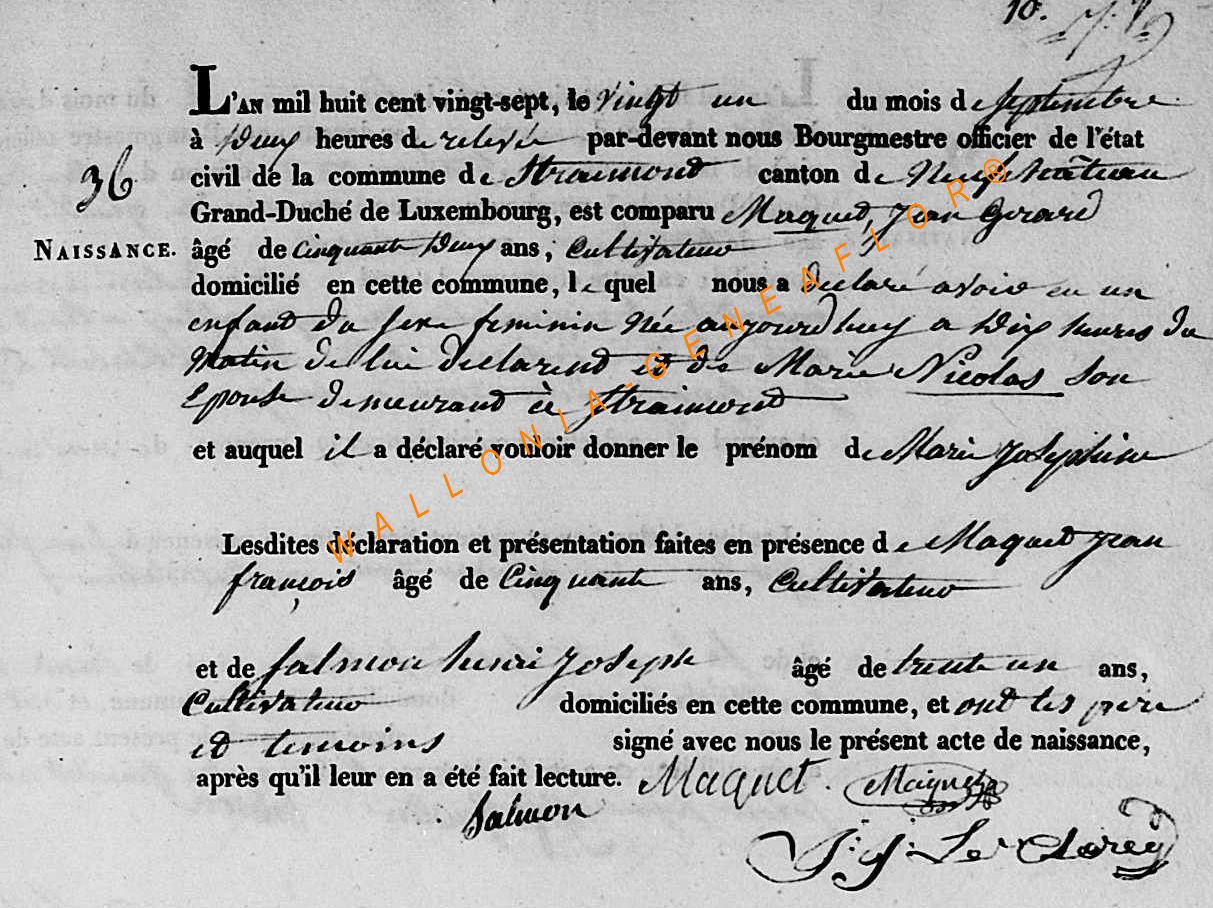 10.
L'AN mil huit cent vingt-sept, le vingt un du mois de Septembre
à Deux heures de relevée par-devant nous Bourgmestre officier de l'état
36
civil de la commune de Straimont canton de Neufchâteau
Grand-Duché de Luxembourg, est comparu Maquet, Jean Gerard
NAISSANCE. âgé de Cinquante Deux ans, Cultivateur
domicilié en cette commune, le quel nous a declaré avoir eu un
enfant du sexe feminin Née aujourdhuy a Dix heures du
Matin de lui declarent et de Marie Nicolas Son
Epouse demeurant à Straimont
et auquel il a déclaré vouloir donner le prénom de Marie Josephine
Lesdites déclaration et présentation faites en présence de Maquet Jean
françois âgé de Cinquante ans, Cultivateur
et de Salmon henri Joseph âgé de trente un ans,
Cultivateur domiciliés en cette commune, et ont les père
et temoins signé avec nous le présent acte de naissance,
après qu'il leur en a été fait lecture. Maquet. Maquet
Salmon
WALLONIA-GENEAFLOR®